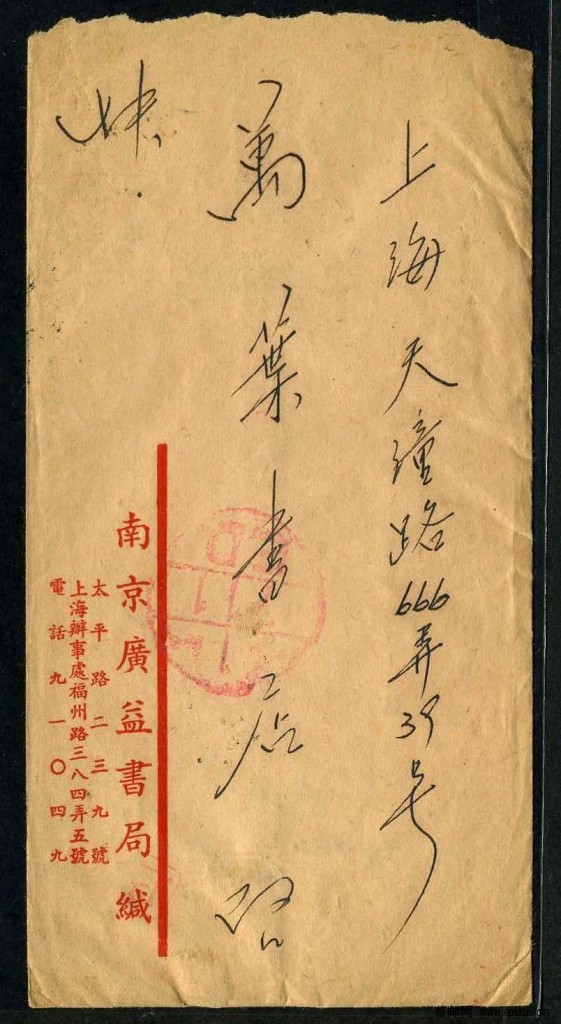 上海天潼路666弄39号
萬葉書店啓
快
南京廣益書局緘
太平路二三九號
上海辦事處福州路三八四弄五號
電話九一〇四九